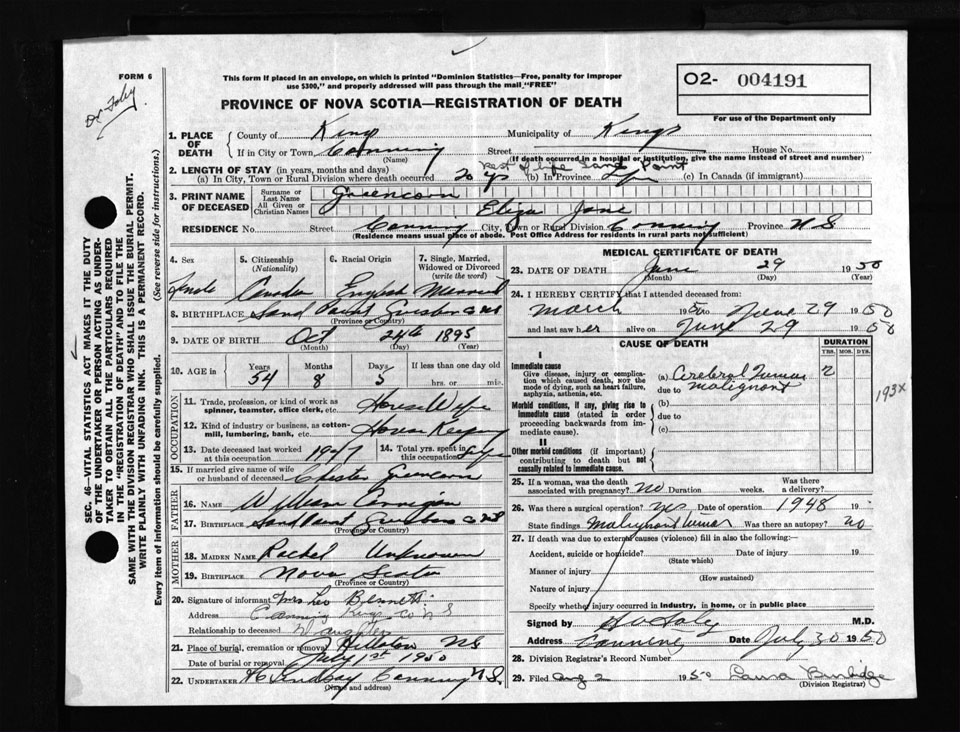 FORM 6
Dr Foley.
This form if placed in an envelope, on which is printed "Dominion Statistics—Free, penalty for improper
use $300," and properly addressed will pass through the mail "FREE"
O2- 004191
PROVINCE OF NOVA SCOTIA—REGISTRATION OF DEATH
For use of the Department only
1. PLACE OF DEATH County of Kings Municipality of Kings
If in City or Town Canning Street House No.
(Name) (If death occurred in a hospital or institution, give the name instead of street and number)
2. LENGTH OF STAY (in years, months and days) rest of life Sand Point
(a) In City, Town or Rural Division where death occurred 20 yrs (b) In Province Life (c) In Canada (if immigrant)
3. PRINT NAME OF DECEASED Surname or Last Name Greencorn
All Given or Christian Names Eliza Jane
RESIDENCE No. Street Canning City, Town or Rural Division Canning Province N S
(Residence means usual place of abode. Post Office Address for residents in rural parts not sufficient)
4. Sex 5. Citizenship (Nationality) 6. Racial Origin 7. Single, Married, Widowed or Divorced (write the word)
Canada English Married
8. BIRTHPLACE Sand Point Guysboro Co NS
(Province or Country)
9. DATE OF BIRTH Oct 24th 1895
(Month) (Day) (Year)
10. AGE in Years Months Days If less than one day old
54 8 5 hrs. or min.
OCCUPATION
11. Trade, profession, or kind of work as spinner, teamster, office clerk, etc. House Wife
12. Kind of industry or business, as cotton-mill, lumbering, bank, etc. House Keeping
13. Date deceased last worked at this occupation 1947 14. Total yrs. spent in this occupation Life
15. If married give name of wife or husband of deceased Chester Greencorn
FATHER
16. NAME William
17. BIRTHPLACE Sand Point Guysboro Co NS
MOTHER
18. MAIDEN NAME Rachel Unknown
19. BIRTHPLACE Nova Scotia
(Province or Country)
20. Signature of informant Mrs Leo Bennett
Address Canning Kings Co N S
Relationship to deceased Daughter
21. Place of burial, cremation or removal Hillaton NS
Date of burial or removal July 1st 1950
22. UNDERTAKER Lindsay Canning N.S.
(Name and address)
MEDICAL CERTIFICATE OF DEATH
23. DATE OF DEATH June 29 1950
(Month) (Day) (Year)
24. I HEREBY CERTIFY that I attended deceased from:
March 1950 to June 29 1950
and last saw her alive on June 29 1950
CAUSE OF DEATH DURATION
YRS. MOS. DYS.
I
Immediate cause
Give disease, injury or complication which caused death, not the mode of dying, such as heart failure, asphyxia, asthenia, etc.
(a) Cerebral Tumour 2
due to malignant
193X
Morbid conditions, if any, giving rise to immediate cause (stated in order proceeding backwards from immediate cause).
(b)
due to
(c)
II
Other morbid conditions (if important) contributing to death but not causally related to immediate cause.
25. If a woman, was the death associated with pregnancy? no Duration weeks. Was there a delivery?
26. Was there a surgical operation? yes Date of operation 1948 19
State findings Malignant tumor Was there an autopsy? no
27. If death was due to external causes (violence) fill in also the following:
Accident, suicide or homicide? Date of injury 19
(State which)
Manner of injury
(How sustained)
Nature of injury
Specify whether injury occurred in industry, in home, or in public place
Signed by Foley M.D.
Address Canning Date July 30 1950
28. Division Registrar's Record Number
29. Filed Aug 2 1950 Laura Burbidge
(Division Registrar)
SEC. 46—VITAL STATISTICS ACT MAKES IT THE DUTY
OF THE UNDERTAKER OR PERSON ACTING AS UNDER-
TAKER TO OBTAIN ALL THE PARTICULARS REQUIRED
IN THE "REGISTRATION OF DEATH" AND TO FILE THE
SAME WITH THE DIVISION REGISTRAR WHO SHALL ISSUE THE BURIAL PERMIT.
WRITE PLAINLY WITH UNFADING INK. THIS IS A PERMANENT RECORD.
Every item of information should be carefully supplied. (See reverse side for instructions.)